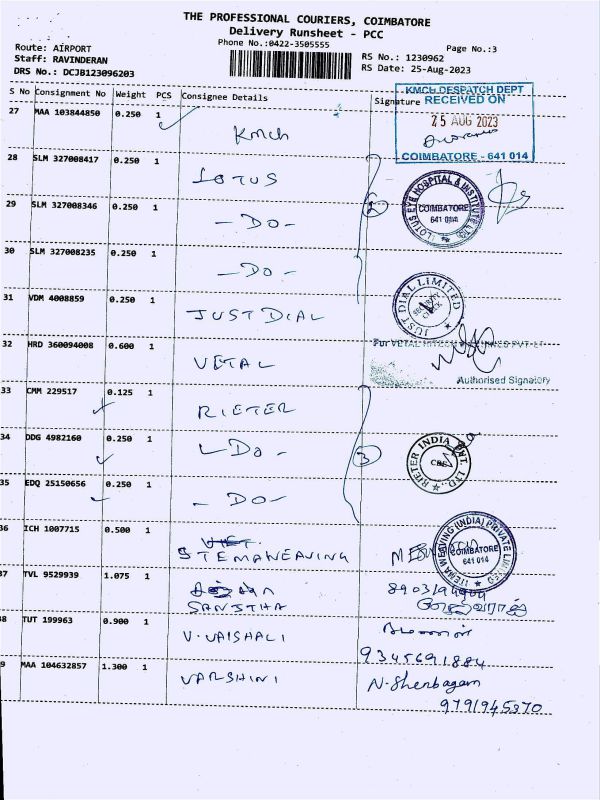 THE PROFESSIONAL COURIERS, COIMBATORE
Delivery Runsheet - PCC
Phone No.:0422-3505555
Page No.:3
Route: AIRPORT
Staff: RAVINDERAN
DRS No.: DCJB123096203
RS No.: 1230962
RS Date: 25-Aug-2023
S No Consignment No Weight PCS Consignee Details Signature
KMCH DESPATCH DEPT
RECEIVED ON
25 AUG 2023
COIMBATORE - 641 014
27 MAA 103844850 0.250 1 Kmch
28 SLM 327008417 0.250 1 LOTUS
LOTUS EYE HOSPITAL & INSTITUTE LTD
COIMBATORE
641 014
29 SLM 327008346 0.250 1 - DO -
30 SLM 327008235 0.250 1 - DO -
31 VDM 4008859 0.250 1 JUST DIAL
JUST DIAL LIMITED
SECURITY
CHECK
32 HRD 360094008 0.600 1 VETAL
For VETAL
PVT
Authorised Signatory
33 CMM 229517 0.125 1 RIETER
34 DDG 4982160 0.250 1 - DO -
3
RIETER INDIA PVT. LTD.
CBE
35 EDQ 25150656 0.250 1 - DO -
36 ICH 1007715 0.500 1 STEMAWEAVING
ITEMA WEAVING (INDIA) PRIVATE LIMITED
COIMBATORE
641 014
37 TVL 9529939 1.075 1 SANJTHA
38 TUT 199963 0.900 1 V. VAISHALI
9345691884
39 MAA 104632857 1.300 1 VARSHINI
N. Shenbagam
9791945370